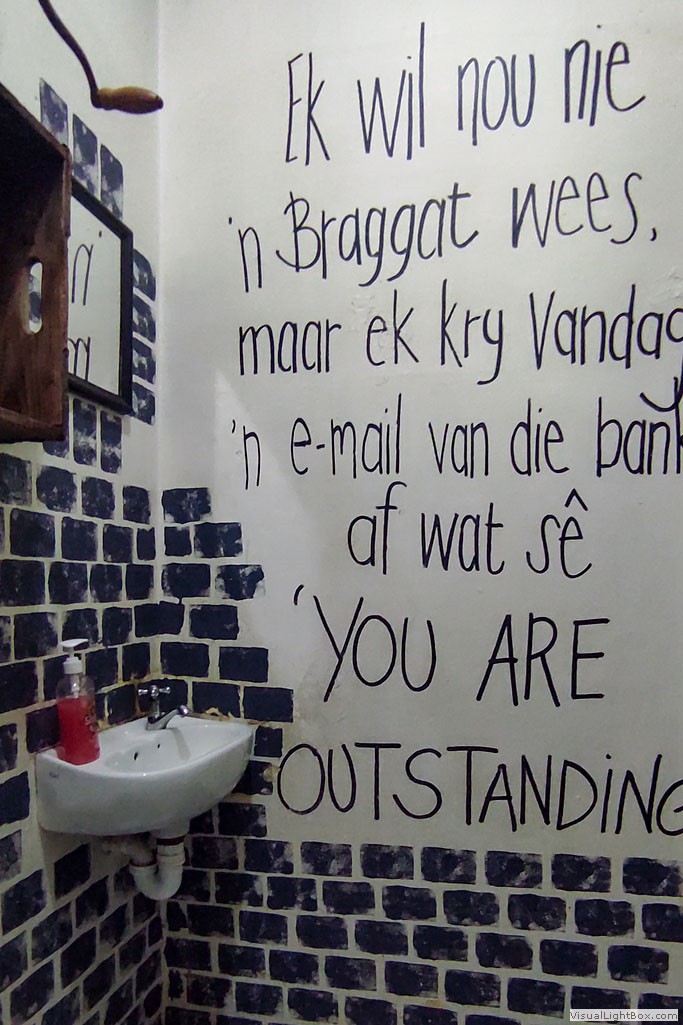 Ek wil nou nie
'n Braggat wees,
maar ek kry Vandag
'n e-mail van die bank
af wat sê
'YOU ARE
OUTSTANDING
VisualLightBox.com